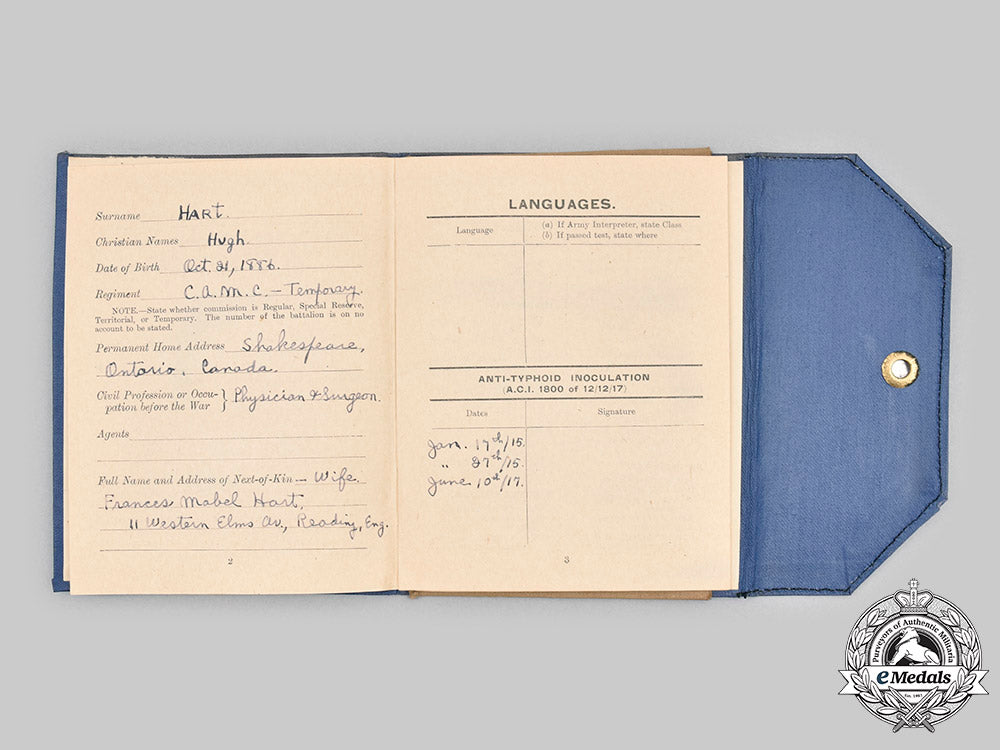 Surname HART.
Christian Names Hugh.
Date of Birth Oct. 21, 1886.
Regiment C.A.M.C. – Temporary.
NOTE.—State whether commission is Regular, Special Reserve,
Territorial, or Temporary. The number of the battalion is on no
account to be stated.
Permanent Home Address Shakespeare,
Ontario, Canada.
Civil Profession or Occu-
pation before the War } Physician & Surgeon.
Agents
Full Name and Address of Next-of-Kin — Wife
Frances Mabel Hart.
11 Western Elms Av., Reading, Eng.
2
LANGUAGES.
Language
(a) If Army Interpreter, state Class
(b) If passed test, state where
ANTI-TYPHOID INOCULATION
(A.C.I. 1800 of 12/12/17)
Dates Signature
Jan. 17th/15.
" 27th/15.
June 10th/17.
3
Purveyors of Authentic Militaria
eMedals